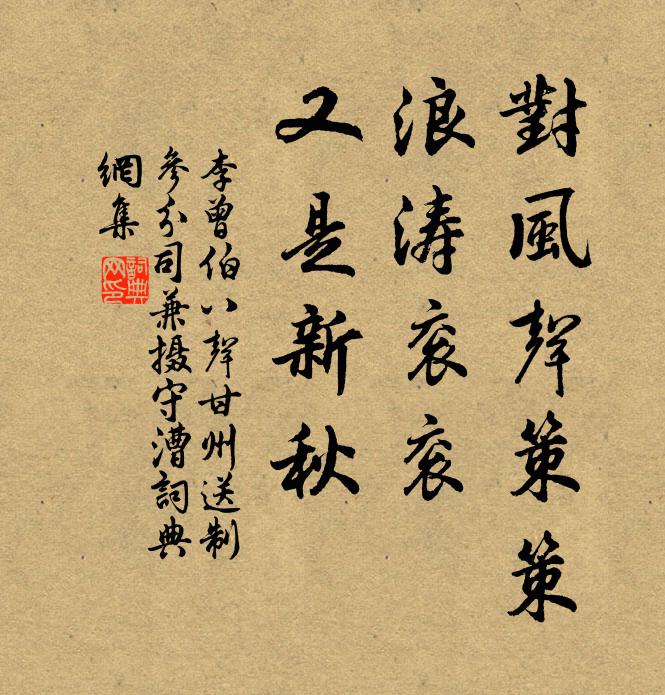 對風聲策策
浪濤衮衮
又是新秋
李曾伯八聲甘州送制
參分司兼摄守漕詞典
網集
詞典
网印